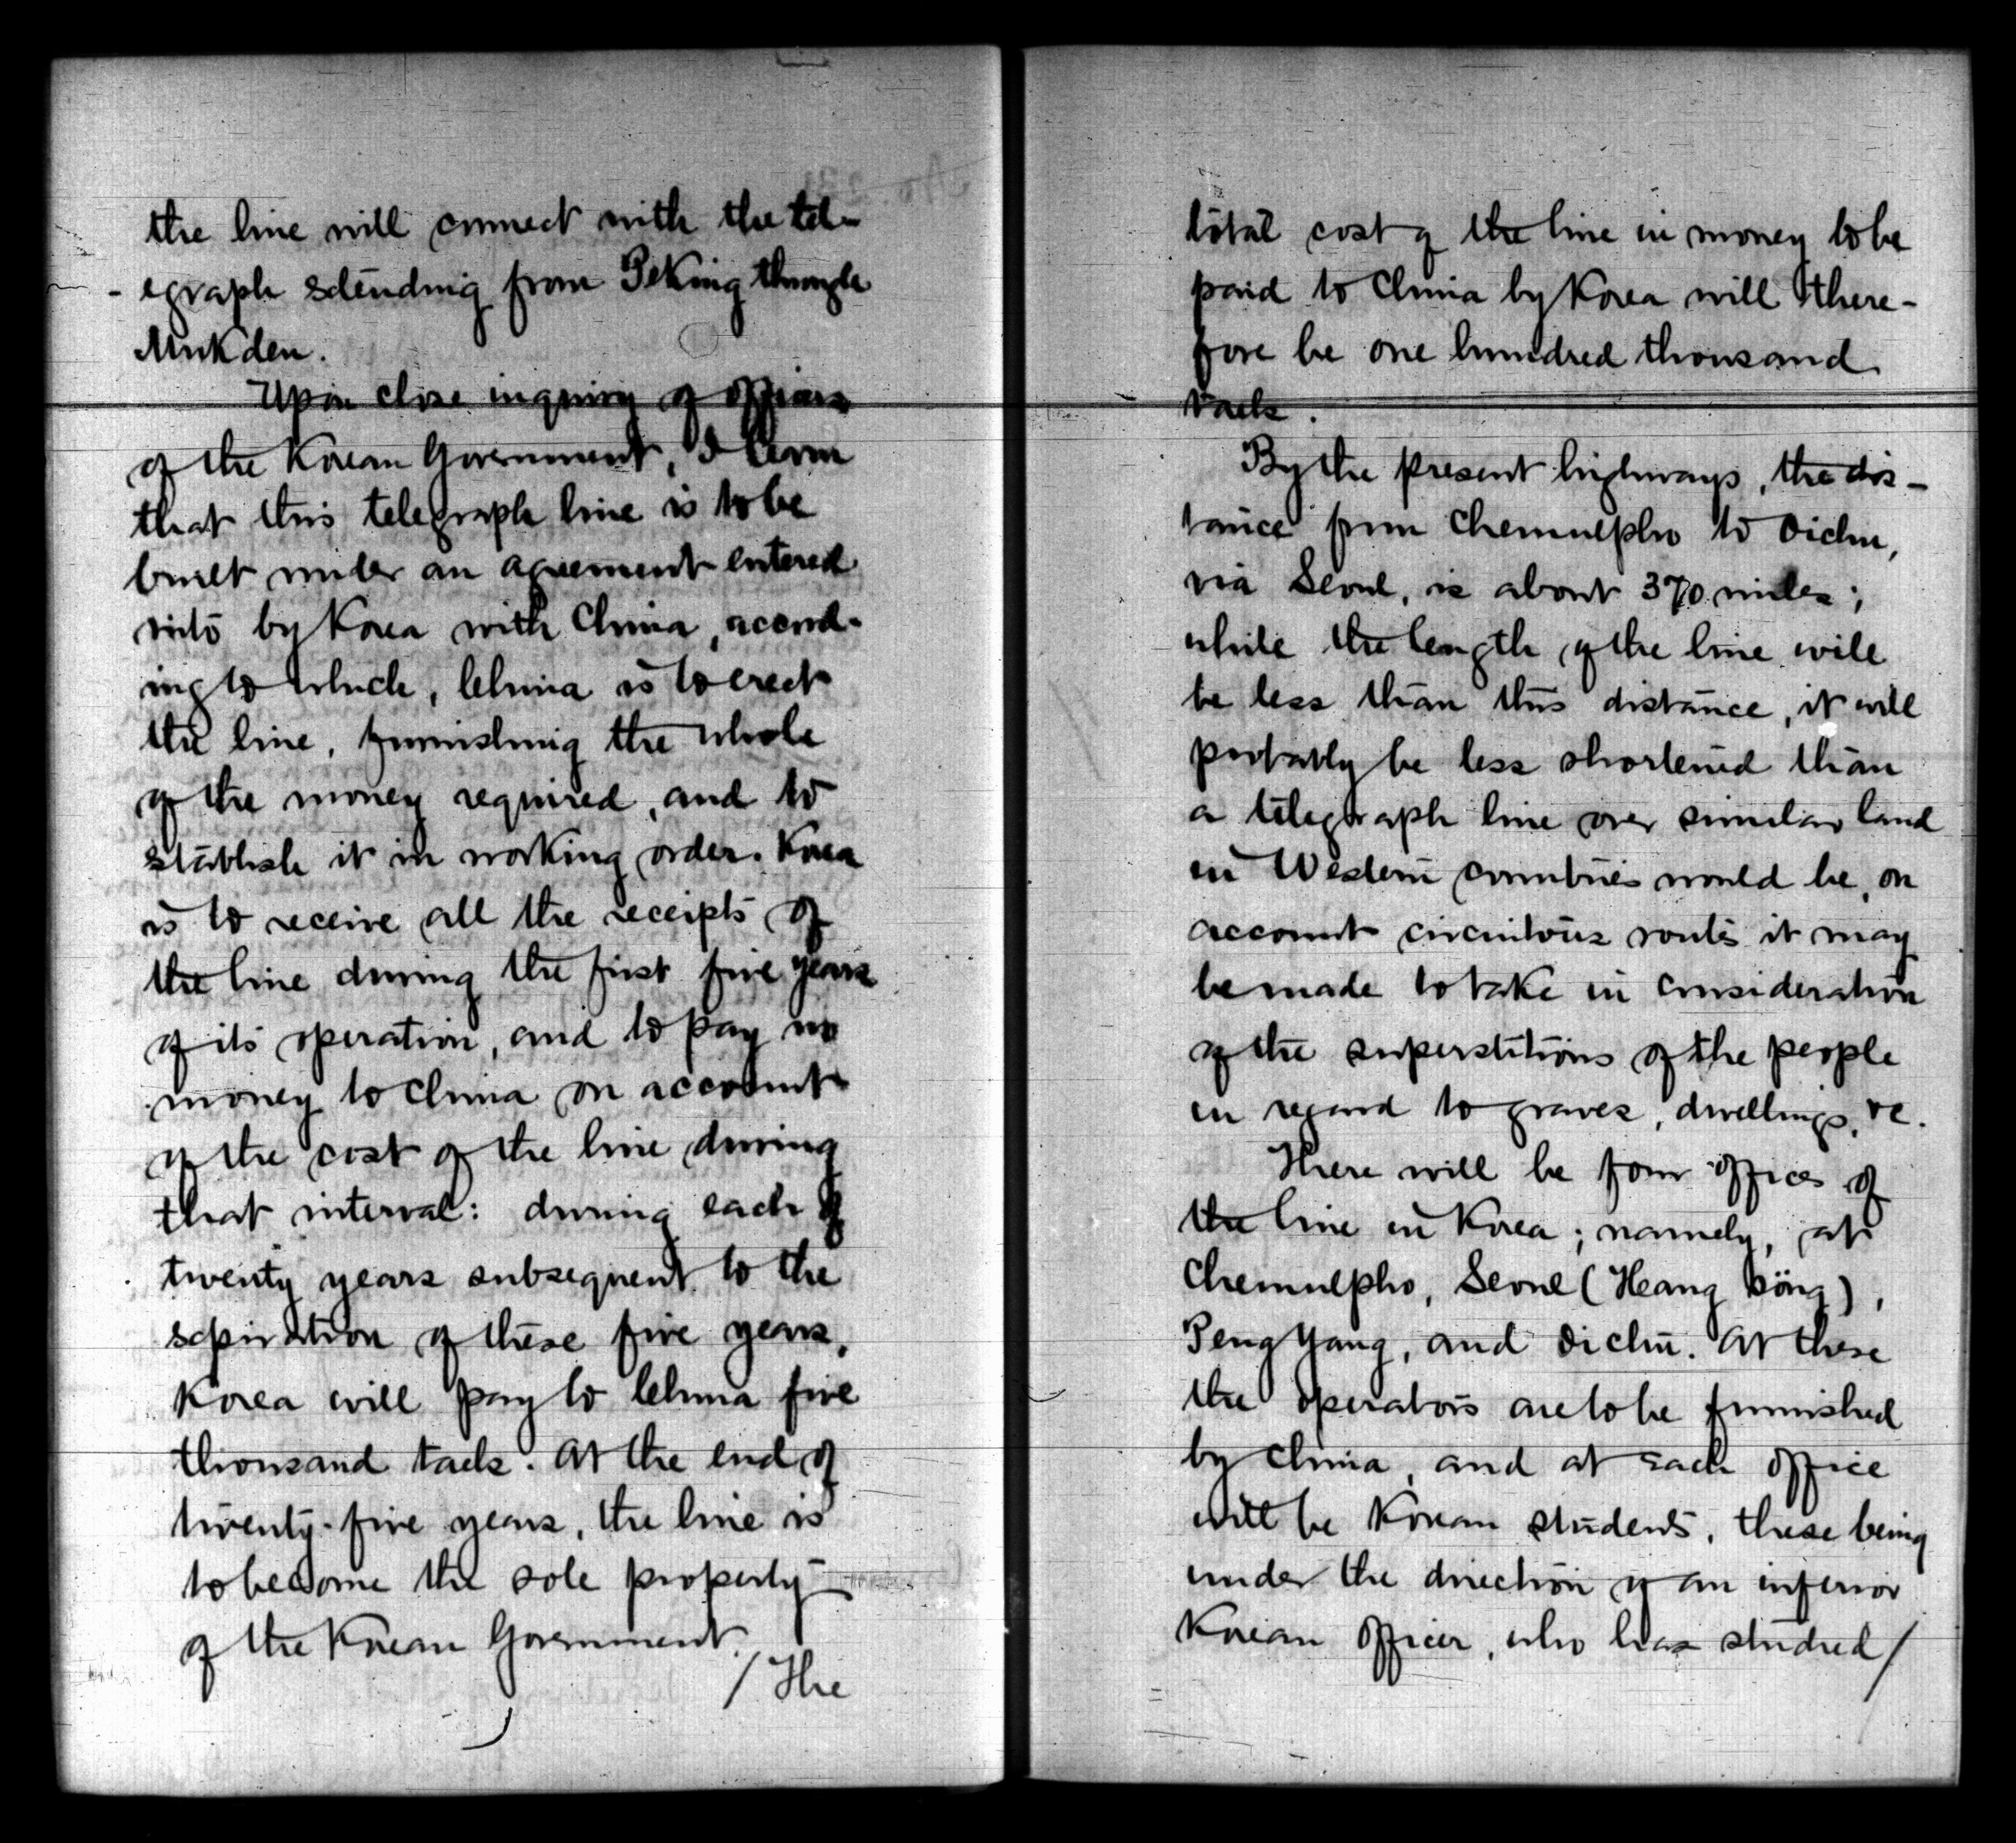 the line will connect with the tel-
egraph extending from Peking through
Mukden.
Upon close inquiry of officers
of the Korean Government, I learn
that this telegraph line is to be
built under an agreement entered
into by Korea with China, accord-
ing to which, China is to erect
the line, furnishing the whole
of the money required, and to
establish it in working order. Korea
is to receive all the receipts of
the line during the first five years
of its operation, and to pay no
money to China on account
of the cost of the line during
that interval: during each of
twenty years subsequent to the
expiration of these five years,
Korea will pay to China five
thousand taels. At the end of
twenty-five years, the line is
to become the sole property
of the Korean Government.
/ The
total cost of the line in money to be
paid to China by Korea will there-
fore be one hundred thousand
taels.
By the present highways, the dis-
tance from Chemulpho to Oichu,
via Seoul, is about 370 miles;
while the length of the line will
be less than this distance, it will
probably be less shortened than
a telegraph line over similar land
in Western countries would be, on
account circuitous routes it may
be made to take in consideration
of the superstitions of the people
in regard to graves, dwellings, &c.
There will be four offices of
the line in Korea; namely, at
Chemulpho, Seoul (Heang Söng),
Peng Yang, and Oichu. At these
the operators are to be furnished
by China, and at each office
will be Korean students, these being
under the direction of an inferior
Korean officer, who has studied/